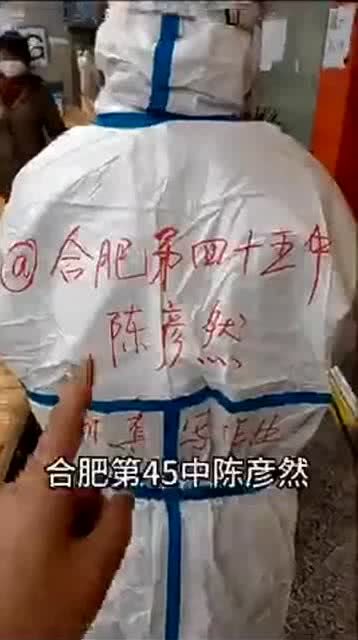 @合肥第四十五中
陈彦然
写作业
合肥第45中陈彦然